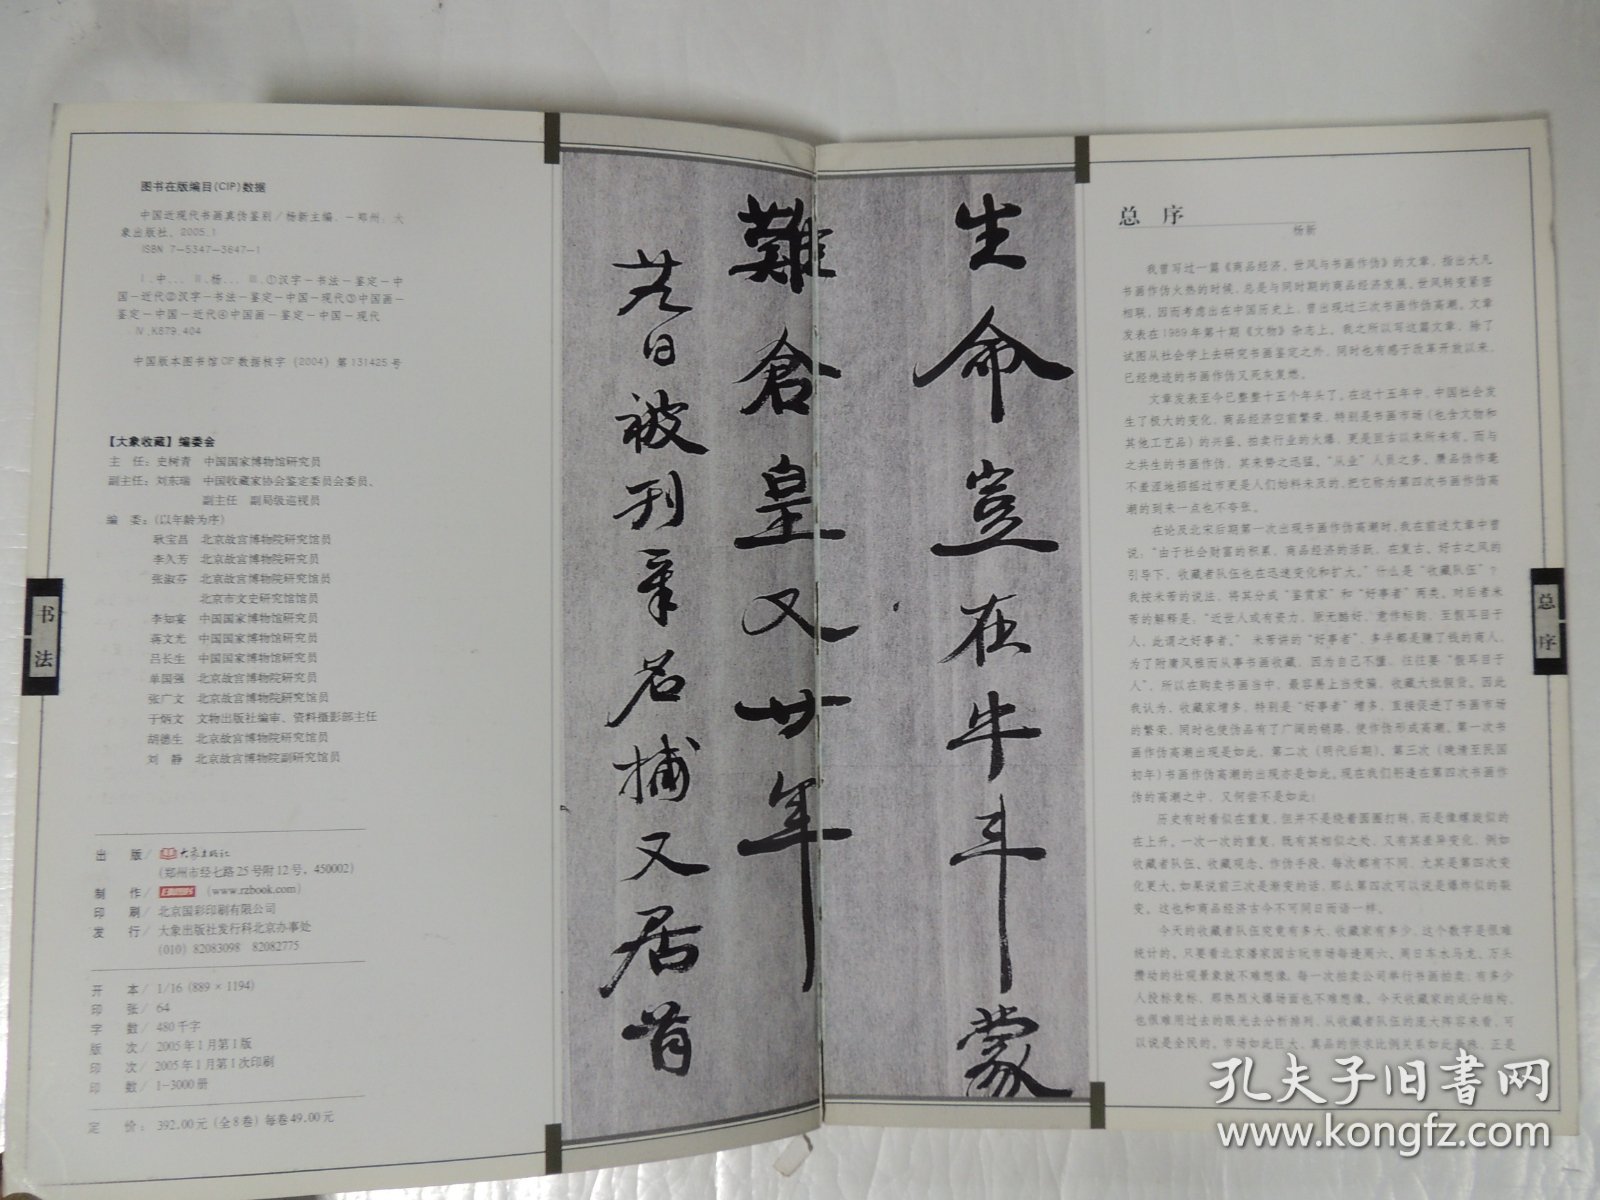 图书在版编目(CIP)数据
中国近现代书画真伪鉴别／杨新主编．－郑州：大
象出版社，2005.1
ISBN 7－5347－3647－1
Ⅰ.中... Ⅱ.杨... Ⅲ.①汉字－书法－鉴定－中
国－近代②汉字－书法－鉴定－中国－现代③中国画－
鉴定－中国－近代④中国画－鉴定－中国－现代
Ⅳ.K879.404
中国版本图书馆CIP数据核字（2004）第131425号
【大象收藏】编委会
主　任：史树青　中国国家博物馆研究员
副主任：刘东瑞　中国收藏家协会鉴定委员会委员、
副主任　副局级巡视员
编　委：(以年龄为序)
耿宝昌　北京故宫博物院研究馆员
李久芳　北京故宫博物院研究馆员
张淑芬　北京故宫博物院研究馆员
北京市文史研究馆馆员
李知宴　中国国家博物馆研究员
蒋文光　中国国家博物馆研究员
吕长生　中国国家博物馆研究员
单国强　北京故宫博物院研究馆员
张广文　北京故宫博物院研究馆员
于炳文　文物出版社编审、资料摄影部主任
胡德生　北京故宫博物院研究馆员
刘　静　北京故宫博物院副研究馆员
出　版/ 大象出版社
(郑州市经七路25号附12号，450002)
制　作/ (www.rzbook.com)
印　刷/ 北京国彩印刷有限公司
发　行/ 大象出版社发行科北京办事处
(010) 82083098　82082775
开　本/ 1/16 (889×1194)
印　张/ 64
字　数/ 480千字
版　次/ 2005年1月第1版
印　次/ 2005年1月第1次印刷
印　数/ 1-3000册
定　价：392.00元 (全8卷) 每卷49.00元
书法
生命岂在牛斗蒙
難倉皇又廿年
日被刊章名捕又居首
总　序
杨新
我曾写过一篇《商品经济、世风与书画作伪》的文章，指出大凡
书画作伪火热的时候，总是与同时期的商品经济发展、世风转变紧密
相联，因而考虑出在中国历史上，曾出现过三次书画作伪高潮。文章
发表在1989年第十期《文物》杂志上。我之所以写这篇文章，除了
试图从社会学上去研究书画鉴定之外，同时也有感于改革开放以来，
已经绝迹的书画作伪又死灰复燃。
文章发表至今已整整十五个年头了。在这十五年中，中国社会发
生了极大的变化，商品经济空前繁荣，特别是书画市场（也含文物和
其他工艺品）的兴盛、拍卖行业的火爆，更是亘古以来所未有。而与
之共生的书画作伪，其来势之迅猛，“从业”人员之多、赝品伪作毫
不羞涩地招摇过市更是人们始料未及的，把它称为第四次书画作伪高
潮的到来一点也不夸张。
在论及北宋后期第一次出现书画作伪高潮时，我在前述文章中曾
说：“由于社会财富的积累，商品经济的活跃，在复古、好古之风的
引导下，收藏者队伍也在迅速变化和扩大。”什么是“收藏队伍”？
我按米芾的说法，将其分成“鉴赏家”和“好事者”两类。对后者米
芾的解释是：“近世人或有资力，原无酷好，意作标韵，至假耳目于
人，此谓之好事者。”米芾讲的“好事者”，多半都是赚了钱的商人，
为了附庸风雅而从事书画收藏，因为自己不懂，往往要“假耳目于
人”，所以在购卖书画当中，最容易上当受骗，收藏大批假货。因此
我认为，收藏家增多，特别是“好事者”增多，直接促进了书画市场
的繁荣，同时也使伪品有了广阔的销路，使作伪形成高潮。第一次书
画作伪高潮出现是如此，第二次（明代后期）、第三次（晚清至民国
初年）书画作伪高潮的出现亦是如此。现在我们躬逢在第四次书画作
伪的高潮之中，又何尝不是如此！
历史有时看似在重复，但并不是绕着圆圈打转，而是像螺旋似的
在上升。一次一次的重复，既有其相似之处，又有其差异变化，例如
收藏者队伍、收藏观念、作伪手段，每次都有不同，尤其是第四次变
化更大。如果说前三次是渐变的话，那么第四次可以说是爆炸似的裂
变。这也和商品经济古今不可同日而语一样。
今天的收藏者队伍究竟有多大、收藏家有多少，这个数字是很难
统计的。只要看北京潘家园古玩市场每逢周六、周日车水马龙、万头
攒动的壮观景象就不难想像，每一次拍卖公司举行书画拍卖，有多少
人投标竞标，那热烈火爆场面也不难想像。今天收藏家的成分结构，
也很难用过去的眼光去分析排列，从收藏者队伍的庞大阵容来看，可
以说是全民的。市场如此巨大，真品的供求比例关系如此悬殊，正是
总序
孔夫子旧書网
www.kongfz.com